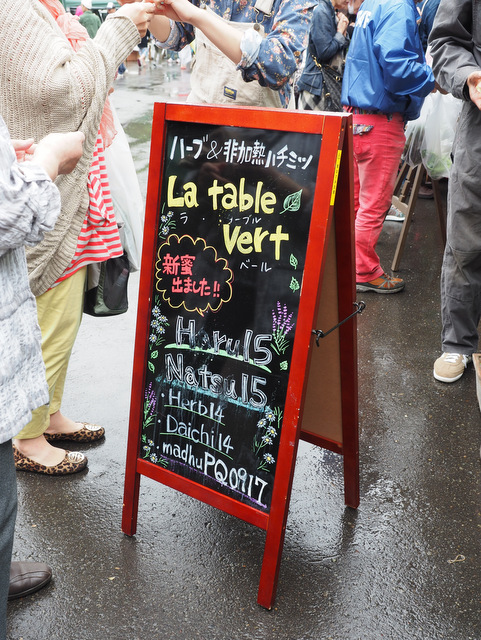 ハーブ&非加熱ハチミツ
La table
ラ・ターブル
Vert
ベール
新蜜
出ました!!
Haru15
Natsu15
・Herb14
・Daichi14
・madhuPQ0917